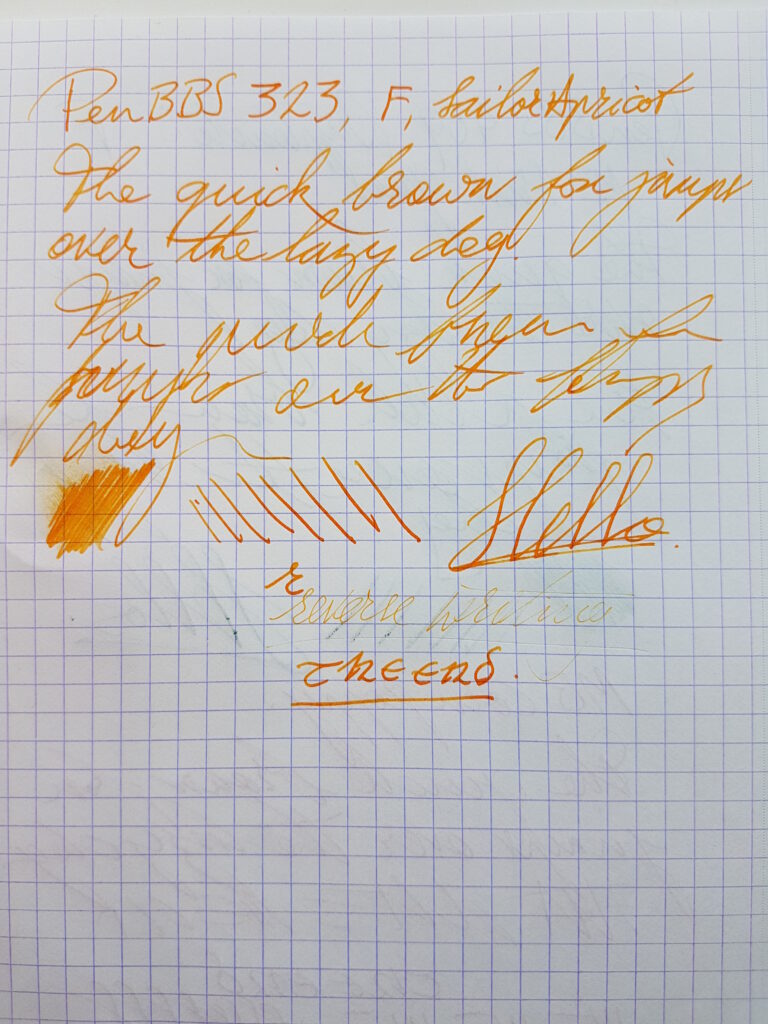 PenBBS 323, F, Sailor Apricot
The quick brown fox jumps
over the lazy dog.
The quick brown fox
jumps over the lazy
dog
Hello.
r
reverse writing
THE END.